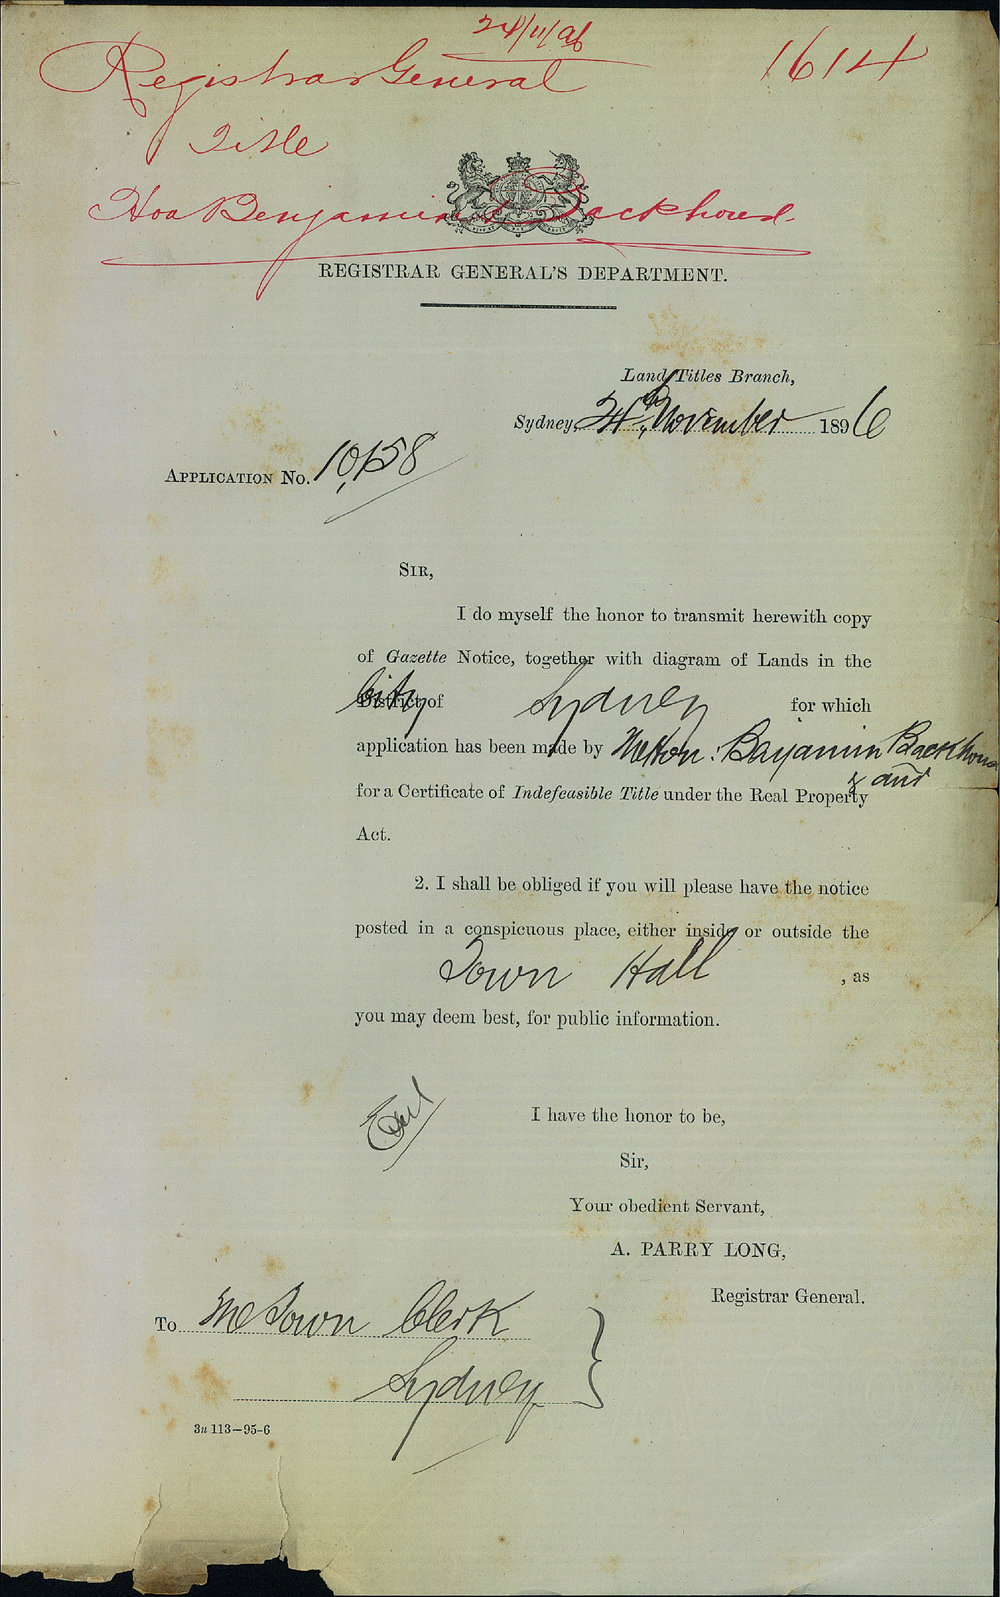 24/11/96
1614
Registrar General
Title
Hon Benjamin Backhouse
REGISTRAR GENERAL'S DEPARTMENT.
Land Titles Branch,
Sydney, 24th November 1896
APPLICATION No. 10,158
SIR,
I do myself the honor to transmit herewith copy
of Gazette Notice, together with diagram of Lands in the
City
District of Sydney for which
application has been made by The Hon: Benjamin Backhouse
and
for a Certificate of Indefeasible Title under the Real Property
Act.
2. I shall be obliged if you will please have the notice
posted in a conspicuous place, either inside or outside the
Town Hall , as
you may deem best, for public information.
I have the honor to be,
Sir,
Your obedient Servant,
A. PARRY LONG,
Registrar General.
To The Town Clerk
Sydney
3n 113-95-6